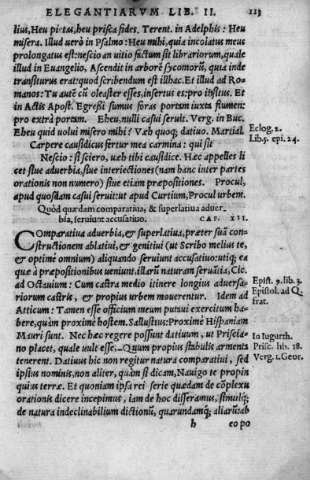 ELEGANTIARVM LIB. II. 113
lius, Heu pietas, heu prisca fides. Terent. in Adelphis: Heu
misera. Illud verò in Psalmo: Heu mihi, quia incolatus meus
prolongatus est: nescio an vitio factum sit librariorum, quale
illud in Euangelio, Ascendit in arborē sycomorū, quia inde
transiturus erat: quod scribendum est illhac. Et illud ad Ro-
manos: Tu autē cū oleaster esses, insertus es: pro isitus. Et
in Actis Apost. Egressi sumus foras portam iuxta flumen:
pro extra portam. Eheu, nulli casui seruit. Verg. in Buc.
Eheu quid uolui misero mihi? Vah quoq; datiuo. Martial.
Eclog. 2.
Lib. 5. epi. 24.
Carpere causidicus fertur mea carmina: qui sit
Nescio: si sciero, uæh tibi causidice. Hæc appelles li
cet siue aduerbia, siue interiectiones (nam hanc inter partes
orationis non numero) siue etiam præpositiones. Procul,
apud quosdam casui seruit: ut apud Curtium, Procul urbem.
Quòd quædam comparatiua, & superlatiua aduer
bia, seruiunt accusatiuo. CAP. XII.
Comparatiua aduerbia, & superlatiua, præter suā con-
structionem ablatiui, & genitiui (ut Scribo melius te,
& optime omnium) aliquando seruiunt accusatiuo: utiq; ea
que à præpositionibus ueniunt. illarū naturam seruātia, Cic.
ad Octauium: Cum castra medio itinere longius aduersa-
riorum castris, & propius urbem mouerentur. Idem ad
Epist. 9. lib. 3.
Epistol. ad Q.
frat.
Atticum: Tamen esse officium meum putaui exercitum ha-
bere, quàm proximè hostem. Sallustius: Proximè Hispaniam
Mauri sunt. Nec hæc regere possunt datiuum, ut Priscia-
no placet, quale uult esse. Quum propius stabulis armenta
tenerent. Datiuus hic non regitur natura comparatiui, sed
In Iugurth.
Prisc. lib. 18.
Verg. 1. Geor.
ipsius nominis, non aliter, quàm si dicam, Nauigo te propin
quius terræ. Et quoniam ipsa rei serie quædam de cōplexu
orationis dicere incepimus, iam de hoc disseramus, simulq;
de natura indeclinabilium dictionū, quarundamq; aliarū ab
h eo po